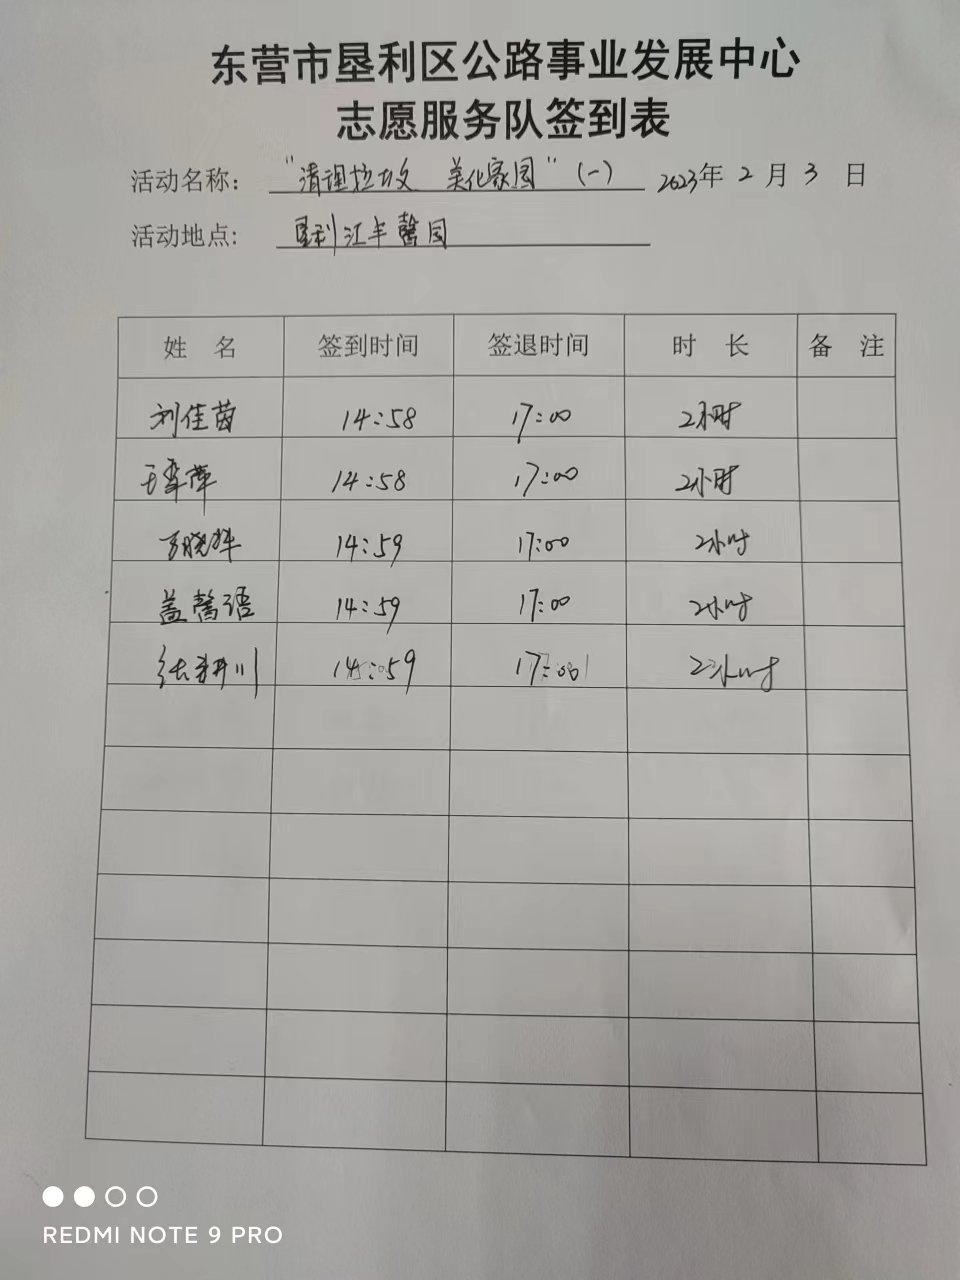 东营市垦利区公路事业发展中心
志愿服务队签到表
活动名称： “清理垃圾 美化家园”（一） 2023年 2 月 3 日
活动地点: 垦利江丰馨园
姓 名 签到时间 签退时间 时 长 备 注
刘佳茵 14:58 17:00 2小时
王 萍 14:58 17:00 2小时
晓 14:59 17:00 2小时
盖馨语 14:59 17:00 2小时
张 川 14:59 17:00 2小时
REDMI NOTE 9 PRO